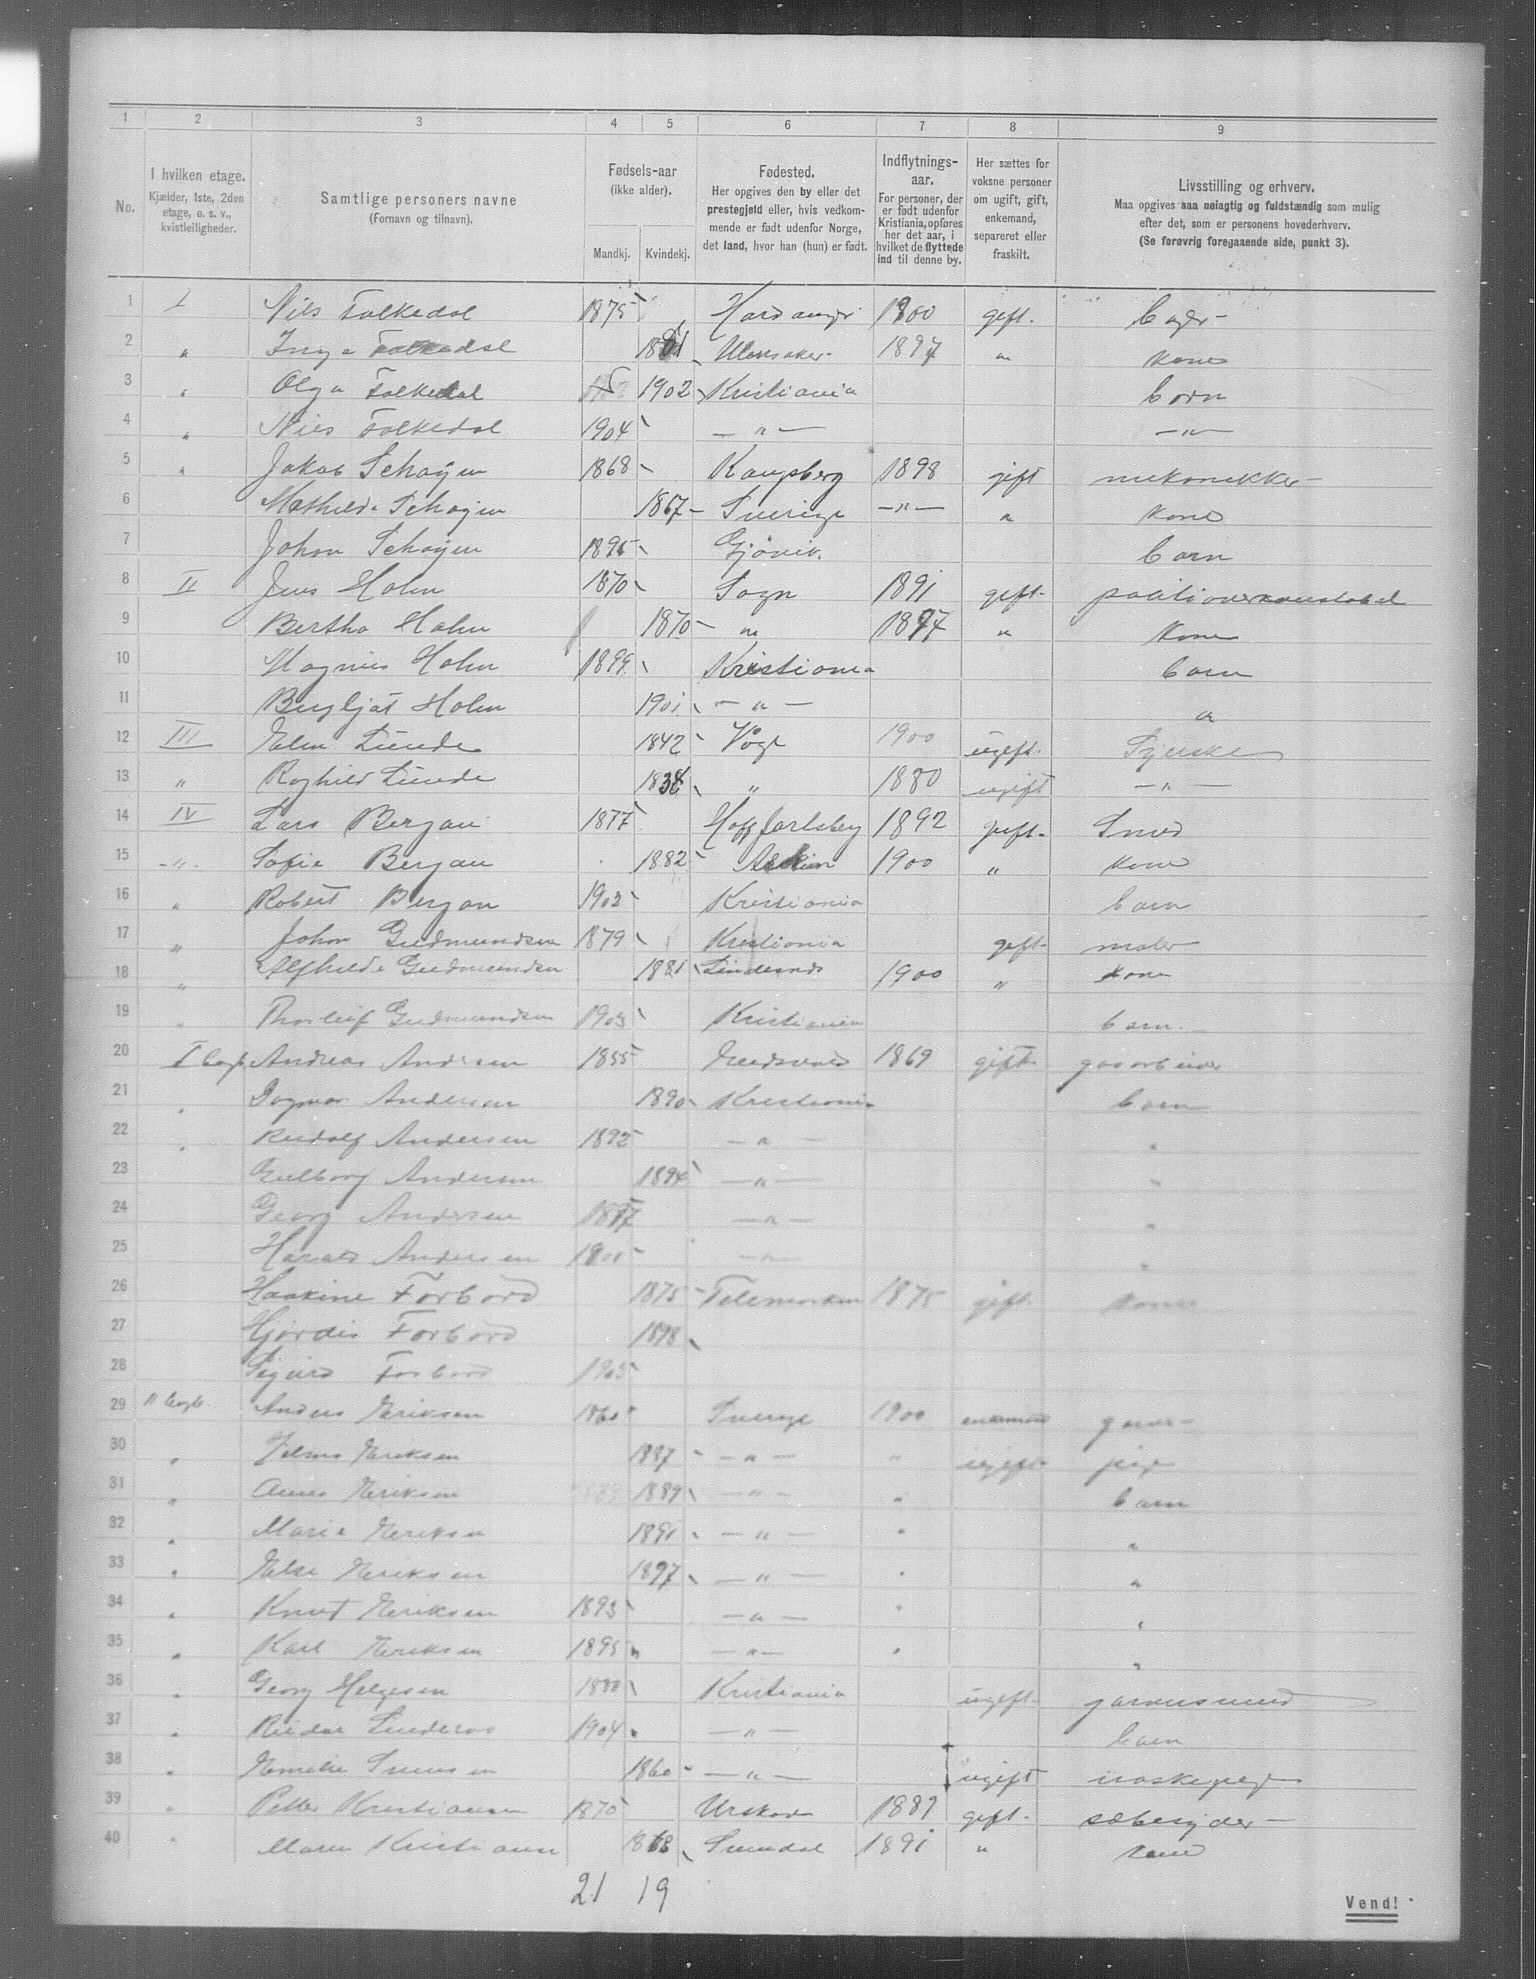 1 2 3 4 5 6 7 8 9
No.
I hvilken etage.
Kjælder, 1ste, 2den
etage, o. s. v.,
kvistleiligheder.
Samtlige personers navne
(Fornavn og tilnavn).
Fødsels-aar
(ikke alder).
Mandkj. Kvindekj.
Fødested.
Her opgives den by eller det
prestegjeld eller, hvis vedkom-
mende er født udenfor Norge,
det land, hvor han (hun) er født.
Indflytnings-
aar.
For personer, der
er født udenfor
Kristiania, opføres
her det aar, i
hvilket de flyttede
ind til denne by.
Her sættes for
voksne personer
om ugift, gift,
enkemand,
separeret eller
fraskilt.
Livsstilling og erhverv.
Maa opgives saa nøiagtig og fuldstændig som mulig
efter det, som er personens hovederhverv.
(Se forøvrig foregaaende side, punkt 3).
1 I Nils Folkedal 1875 Hardanger 1900 gift.
2 " Inga Folkedal 1881 Ullensaker 1897 " kone
3 " Olga Folkedal 1902 Kristiania barn
4 " Nils Folkedal 1904 — " — — " —
5 " Jakob Schøyen 1868 Kongsberg 1898 gift mekanikker
6 Mathilde Schøyen 1867 Sverige — " — " kone
7 Johan Schøyen 1895 Gjøvik. barn
8 II Jens Holm 1870 Sogn 1891 gift politioverkonstabel
9 Bertha Holm 1870 " 1897 " kone
10 Magnus Holm 1899 Kristiania barn
11 Bergljot Holm 1901 — " — "
12 III Elen Lunde 1842 Vaage 1900 ugift. Syerske
13 " Raghild Lunde 1838 " 1880 ugift — " —
14 IV Lars Bergan 1877 1892 gift Smed
15 — " — Sofie Bergan 1882 Askim 1900 " kone
16 " Robert Bergan 1903 Kristiania barn
17 " Johan Gudmundsen 1879 Kristiania gift maler
18 " Alfhilde Gudmundsen 1881 Lindesnes 1900 " kone
19 " Thorleif Gudmundsen 1903 Kristiania barn.
20 I bagb Andreas Andersen 1855 Eidsvold 1869 gift gasarbeider
21 " Dagmar Andersen 1890 Kristiania barn
22 " Rudolf Andersen 1892 — " — "
23 Gulborg Andersen 1894 — " — "
24 Georg Andersen 1897 — " — "
25 Harald Andersen 1901 — " — "
26 Haakine Forbord 1875 Telemarken 1875 gift. kone
27 Hjørdis Forbord 1898
28 Sigurd Forbord 1903
29 II bagb. Anders Eriksen 1860 Sverige 1900 enkemand garver
30 " Vilma Eriksen 1887 — " — " ugift pige
31 " Anna Eriksen 1889 — " — " barn
32 " Marie Eriksen 1891 — " — " "
33 " Else Eriksen 1897 — " — " "
34 " Knut Eriksen 1893 — " — " "
35 " Karl Eriksen 1895 — " — " "
36 " Georg Helgesen 1880 Kristiania ugift garversvend
37 " Reidar 1904 — " — barn
38 " Emelie Svensen 1860 — " — ugift vaskepige
39 " Petter Kristiansen 1870 Urskog 1889 gift. sæbesyder
40 " Maren Kristiansen 1868 Sundal 1891 " kone
21 19
Vend!